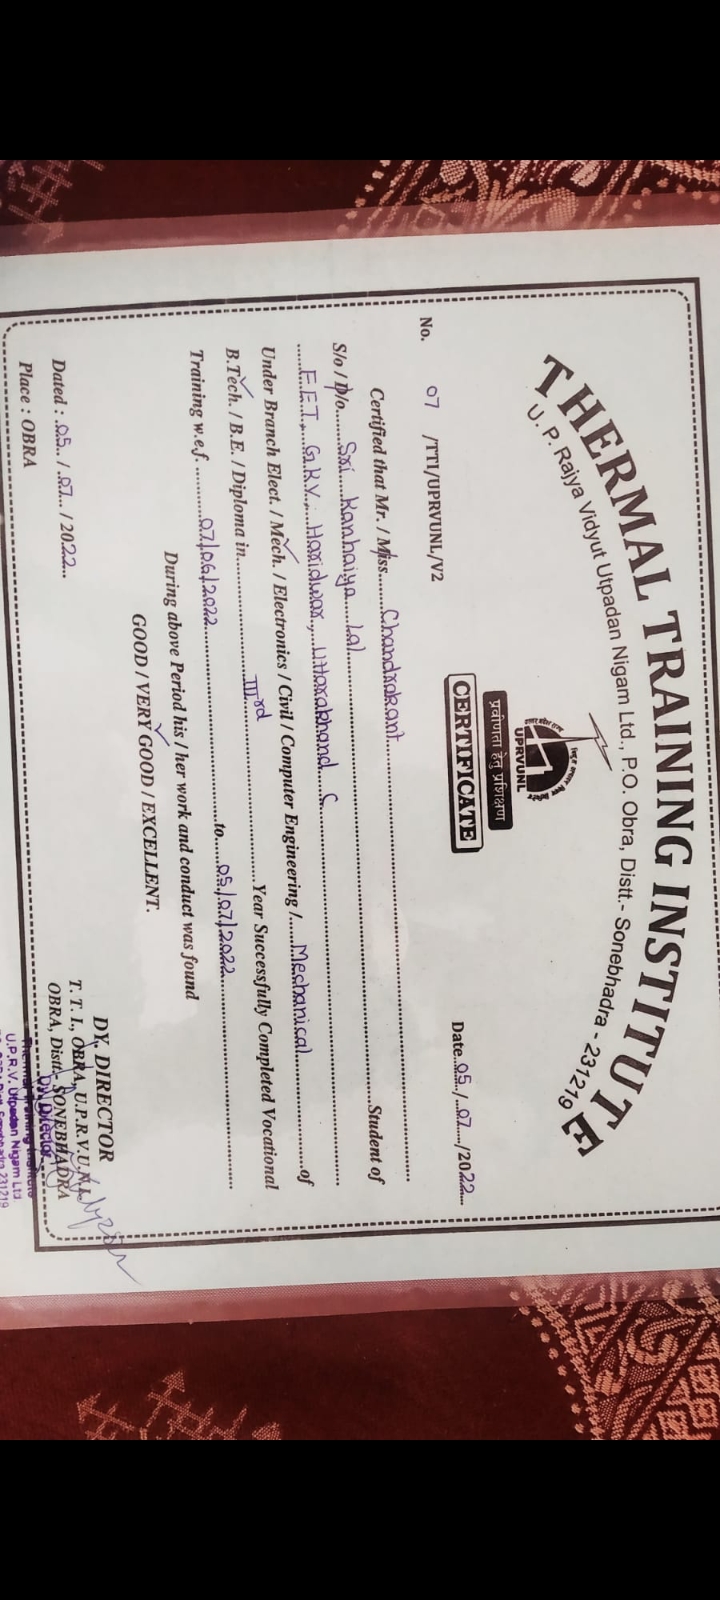 THERMAL TRAINING INSTITUTE
U. P. Rajya Vidyut Utpadan Nigam Ltd., P.O. Obra, Distt.- Sonebhadra - 231219
UPRVUNL
प्रवीणता हेतु प्रशिक्षण
CERTIFICATE
No. 07 /TTI/UPRVUNL/V2 Date 05/07/2022
Certified that Mr. / Miss Chandrakant
S/o / D/o Sri Kanhaiya Lal Student of
F.E.T., G.K.V. Haridwar, Uttarakhand C
Under Branch Elect. / Mech. / Electronics / Civil / Computer Engineering / Mechanical of
B.Tech. / B.E. / Diploma in IIIrd Year Successfully Completed Vocational
Training w.e.f. 07/06/2022 to 05/07/2022
During above Period his / her work and conduct was found
GOOD / VERY GOOD / EXCELLENT.
Dated : 05 / 07 / 2022
Place : OBRA
DY. DIRECTOR
T. T. I., OBRA, U.P.R.V.U.N.L.
OBRA, Distt.- SONEBHADRA
Dy. Director
Thermal Training Institute
U.P.R.V. Utpadan Nigam Ltd
231219